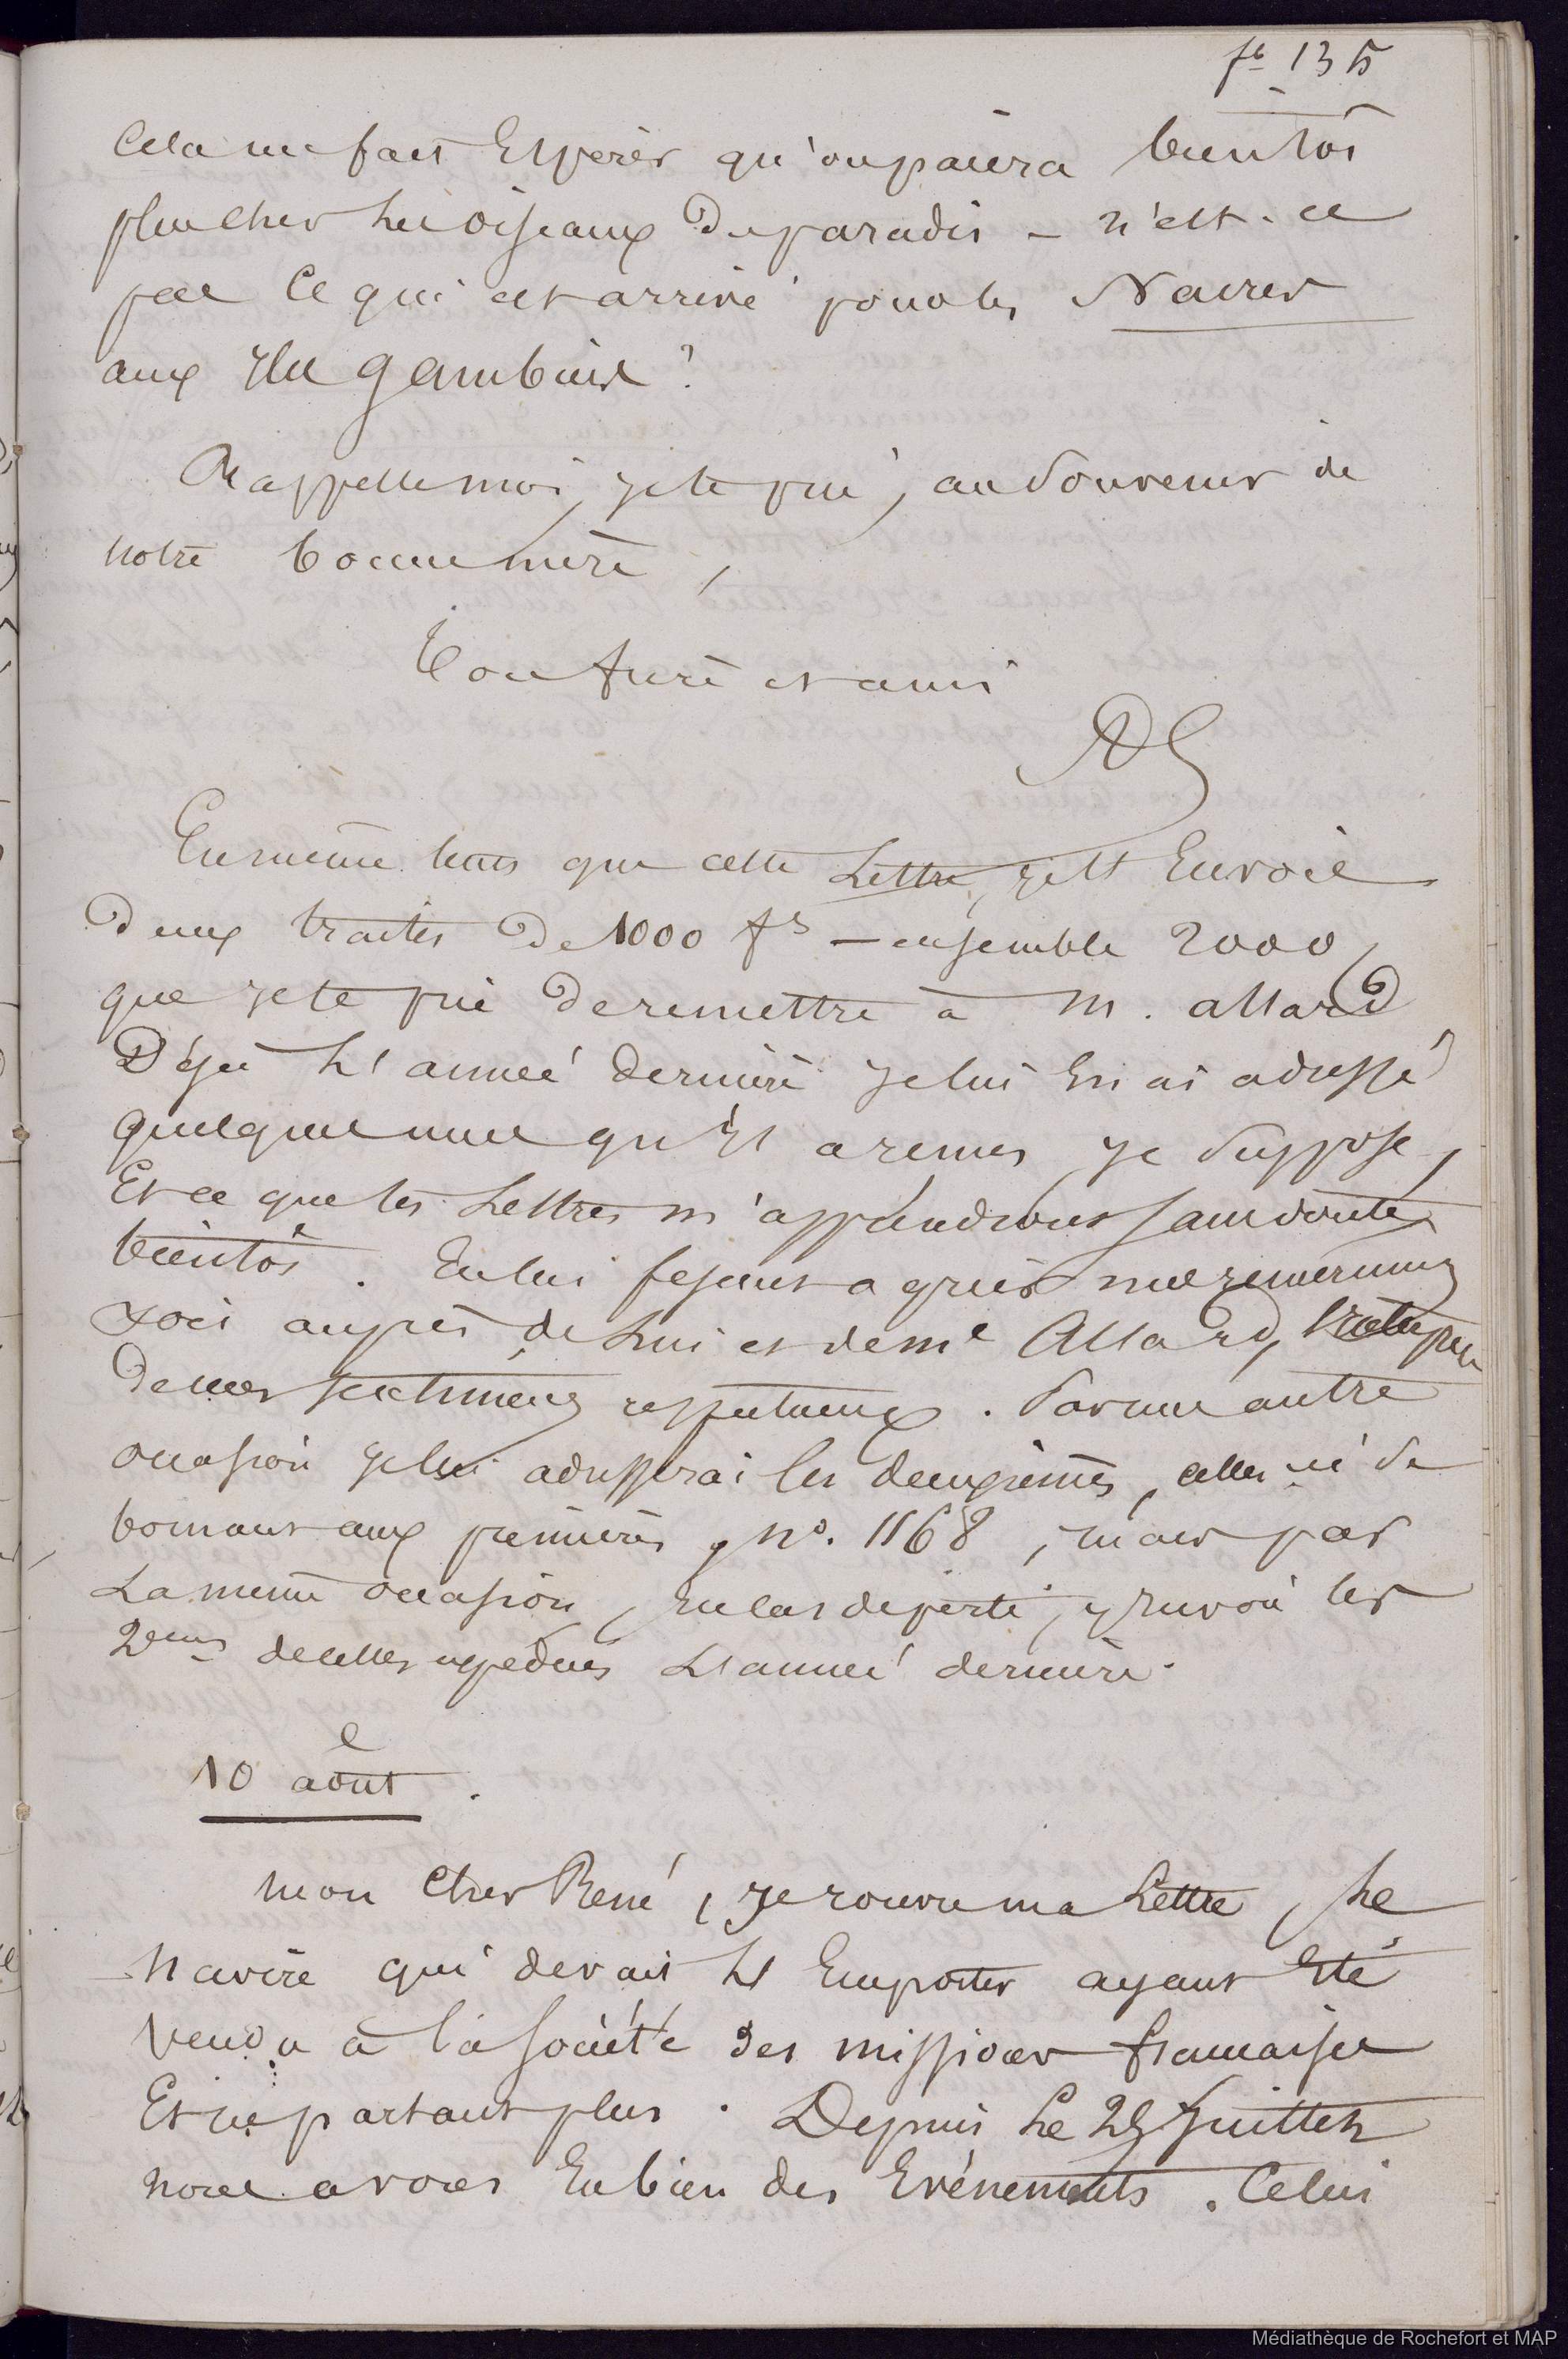 fo 135
Cela me fait Espérer qu'on paiera bientôt
plus cher les oiseaux du paradis – n'est-ce
pas ce qui est arrivé pour les Nacres
aux Iles Gambier ?
Rappelle moi, je te prie, au souvenir de
notre bonne mère,
Ton frère et ami
En même tems que cette Lettre, je t'envoie
deux traites de 1000 frs – ensemble 2000,
que je te prie de remettre à M. Allard
Déjà L'année dernière je lui En ai adressé
quelques unes qu'il a reçues je suppose,
Et ce que tes Lettres m'apprendront sans doute
bientôt. En lui fesant agréer mes remerciemens
sois auprès de Lui et de Me Allard, l'interprète
de mes sentimens respectueux. Par une autre
occasion je lui adresserai les deuxièmes, celles-ci se
bornant aux premières, no. 1168, mais par
La même occasion, en cas de perte, j'envoie les
2emes de celles expédiées L'année dernière.
10 août.
Mon cher René, je rouvre ma Lettre, Le
navire qui devait L'Emporter ayant Été
vendu à la société des missions françaises
Et ne partant plus. Depuis Le 25 Juillet
nous avons Eu bien des Evénements. Celui
Médiathèque de Rochefort et MAP